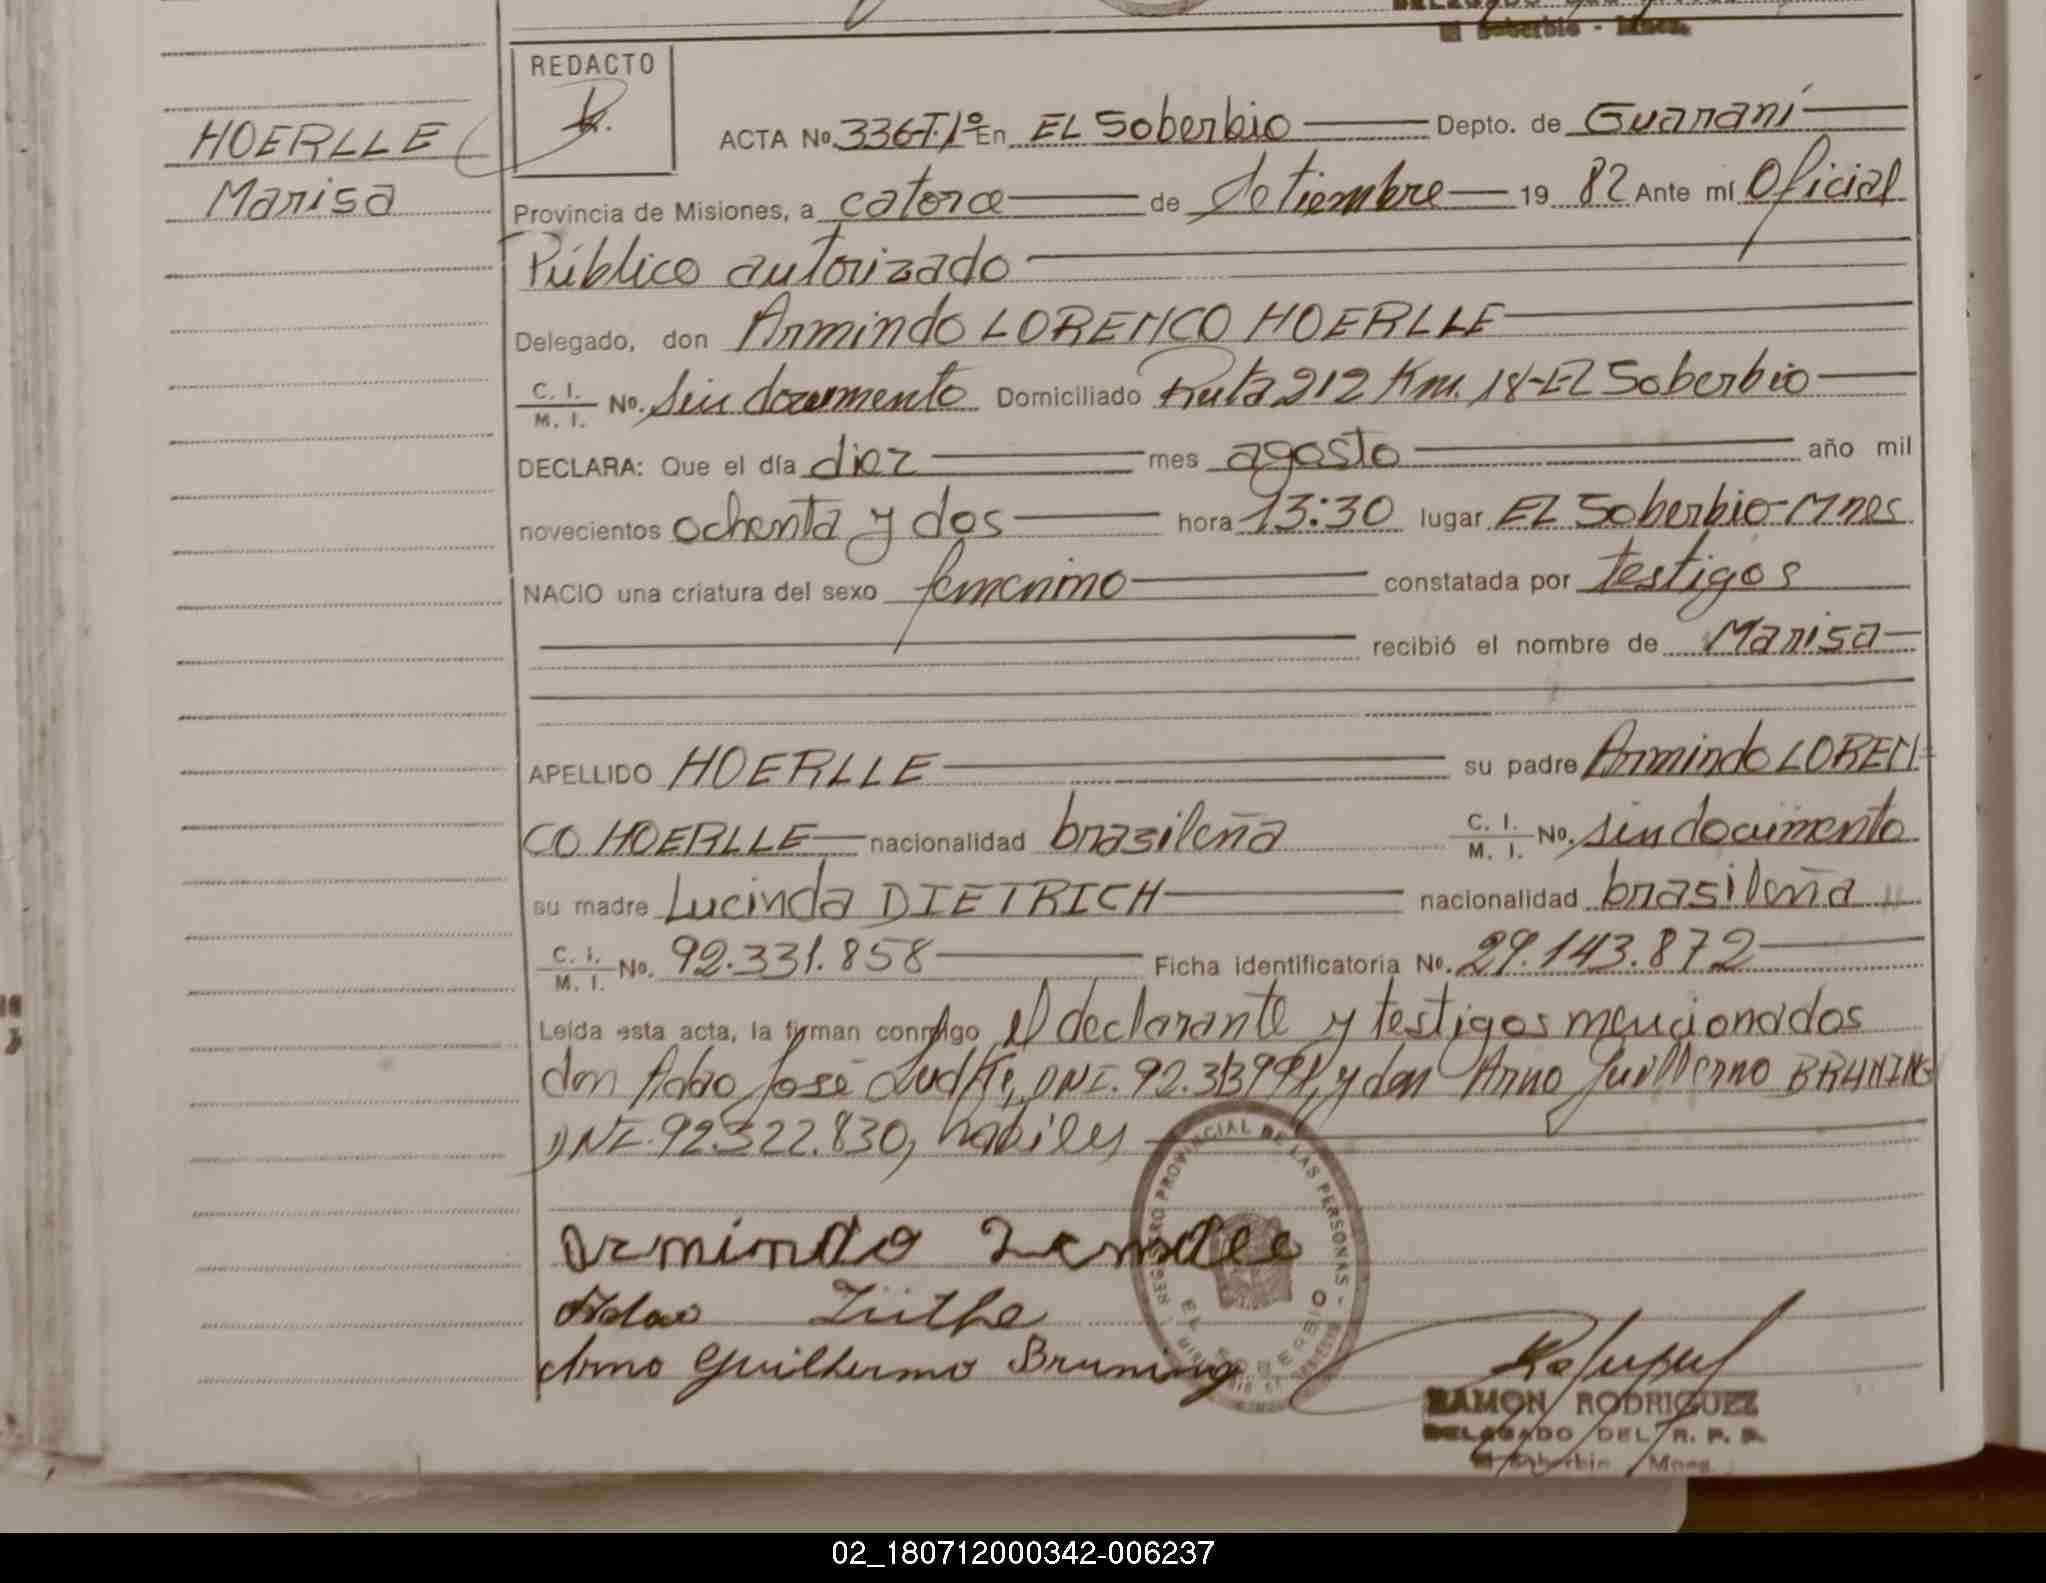 El Soberbio - Mnes.
REDACTO
HOERLLE
Marisa
ACTA No. 336-T.1º En EL Soberbio Depto. de Guaraní
Provincia de Misiones, a catorce de Setiembre 19 82 Ante mí Oficial
Público autorizado
Delegado, don Armindo LORENCO HOERLLE
C. I. / M. I. No. Sin documento Domiciliado Ruta 212 Km. 18-El Soberbio
DECLARA: Que el día diez mes agosto año mil
novecientos ochenta y dos hora 13:30 lugar EL Soberbio-Mnes
NACIO una criatura del sexo femenino constatada por testigos
recibió el nombre de Marisa
APELLIDO HOERLLE su padre Armindo LOREN-
CO HOERLLE nacionalidad brasileña C. I. / M. I. No. sin documento
su madre Lucinda DIETRICH nacionalidad brasileña
C. I. / M. I. No. 92.331.858 Ficha identificatoria No. 29.143.872
Leída esta acta, la firman conmigo el declarante y testigos mencionados
don Adao José DNI. y don Arno Guillermo BRUNING
DNI. 92.322.830, habiles
REGISTRO PROVINCIAL DE LAS PERSONAS - EL SOBERBIO
Armindo
Adao
Arno Guilhermo Bruning
RAMON RODRIGUEZ
DELEGADO DEL R. P. P.
El Soberbio Mnes.
02_180712000342-006237